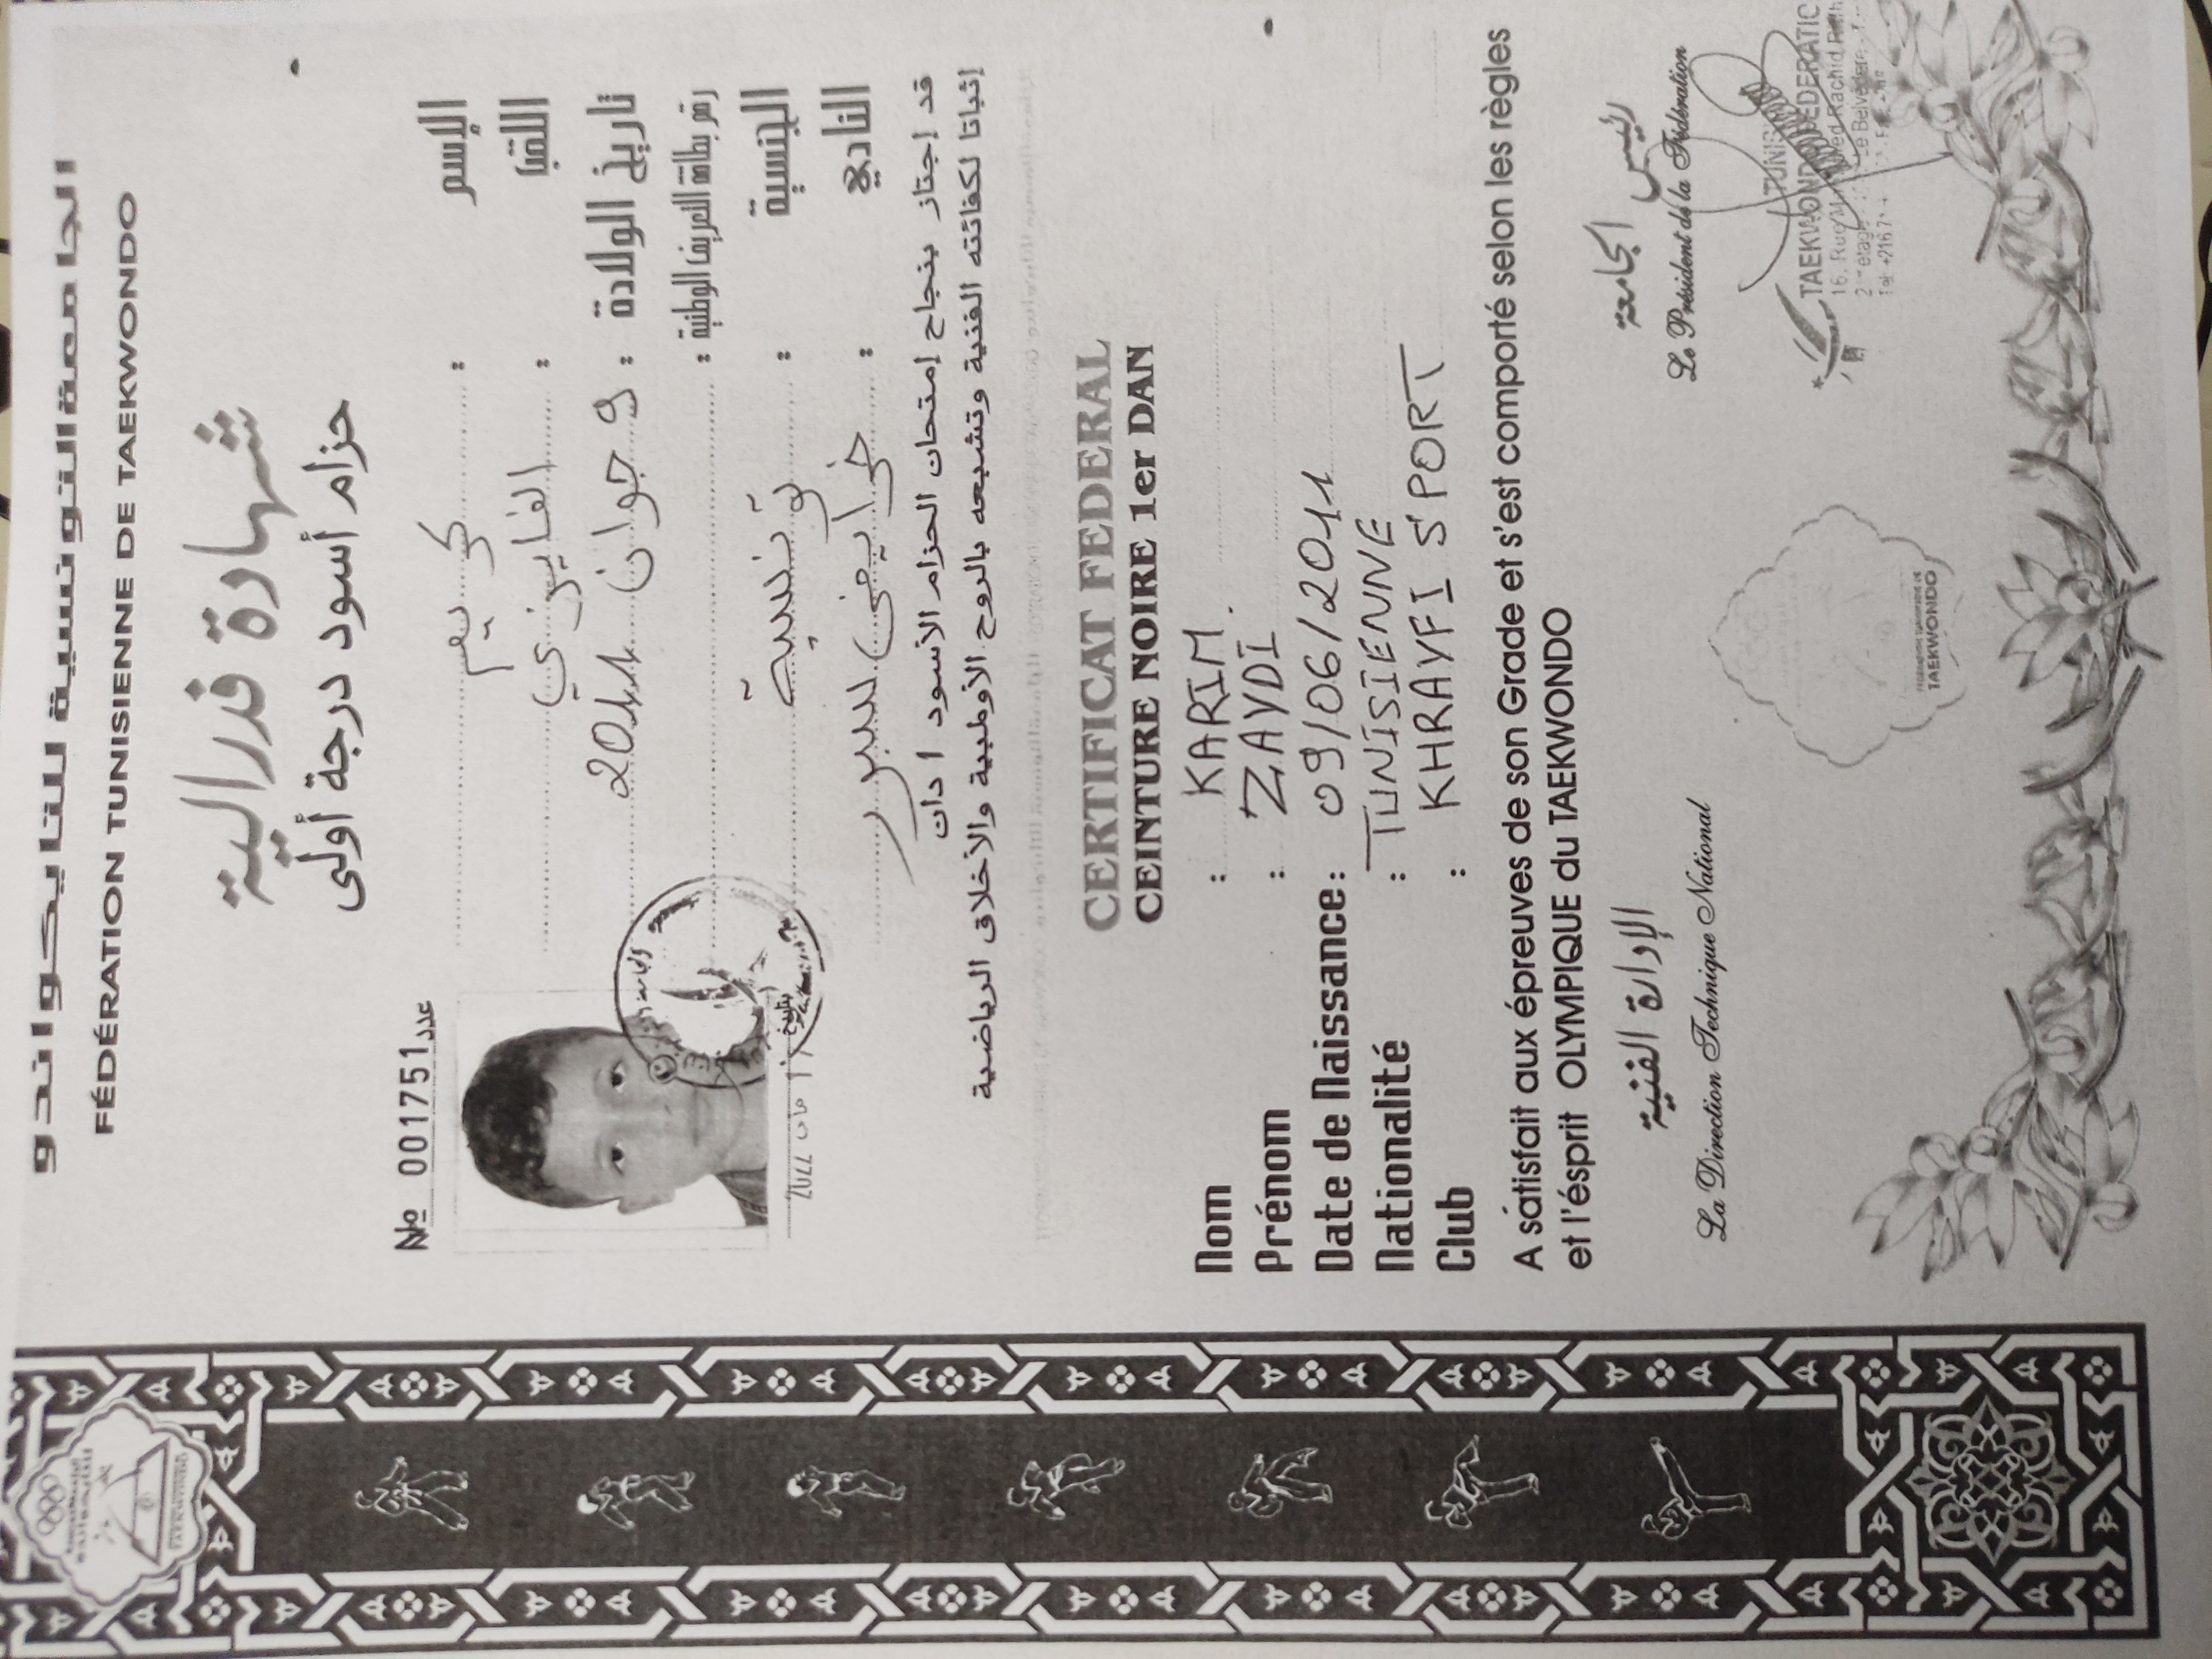 الجامعة التونسية للتايكواندو
FÉDÉRATION TUNISIENNE DE TAEKWONDO
شهادة فدرالية
حزام أسود درجة أولى
№ 001751 عدد
الإسم : كريم
اللقب :
تاريخ الولادة : 9 جوان 2011
رقم بطاقة التعريف الوطنية :
الجنسية : تونسية
النادي : خرايفي سبور
قد إجتاز بنجاح إمتحان الحزام الأسود 1 دان
إثباتا لكفائته الفنية وتشبعه بالروح الأولمبية والأخلاق الرياضية
CERTIFICAT FEDERAL
CEINTURE NOIRE 1er DAN
Nom : KARIM
Prénom : ZAYDI
Date de Naissance : 09/06/2011
Nationalité : TUNISIENNE
Club : KHRAYFI SPORT
A satisfait aux épreuves de son Grade et s'est comporté selon les règles
et l'ésprit OLYMPIQUE du TAEKWONDO
الإدارة الفنية
La Direction Technique National
رئيس الجامعة
Le Président de la Fédération
TAEKWONDO
TAEKWONDO